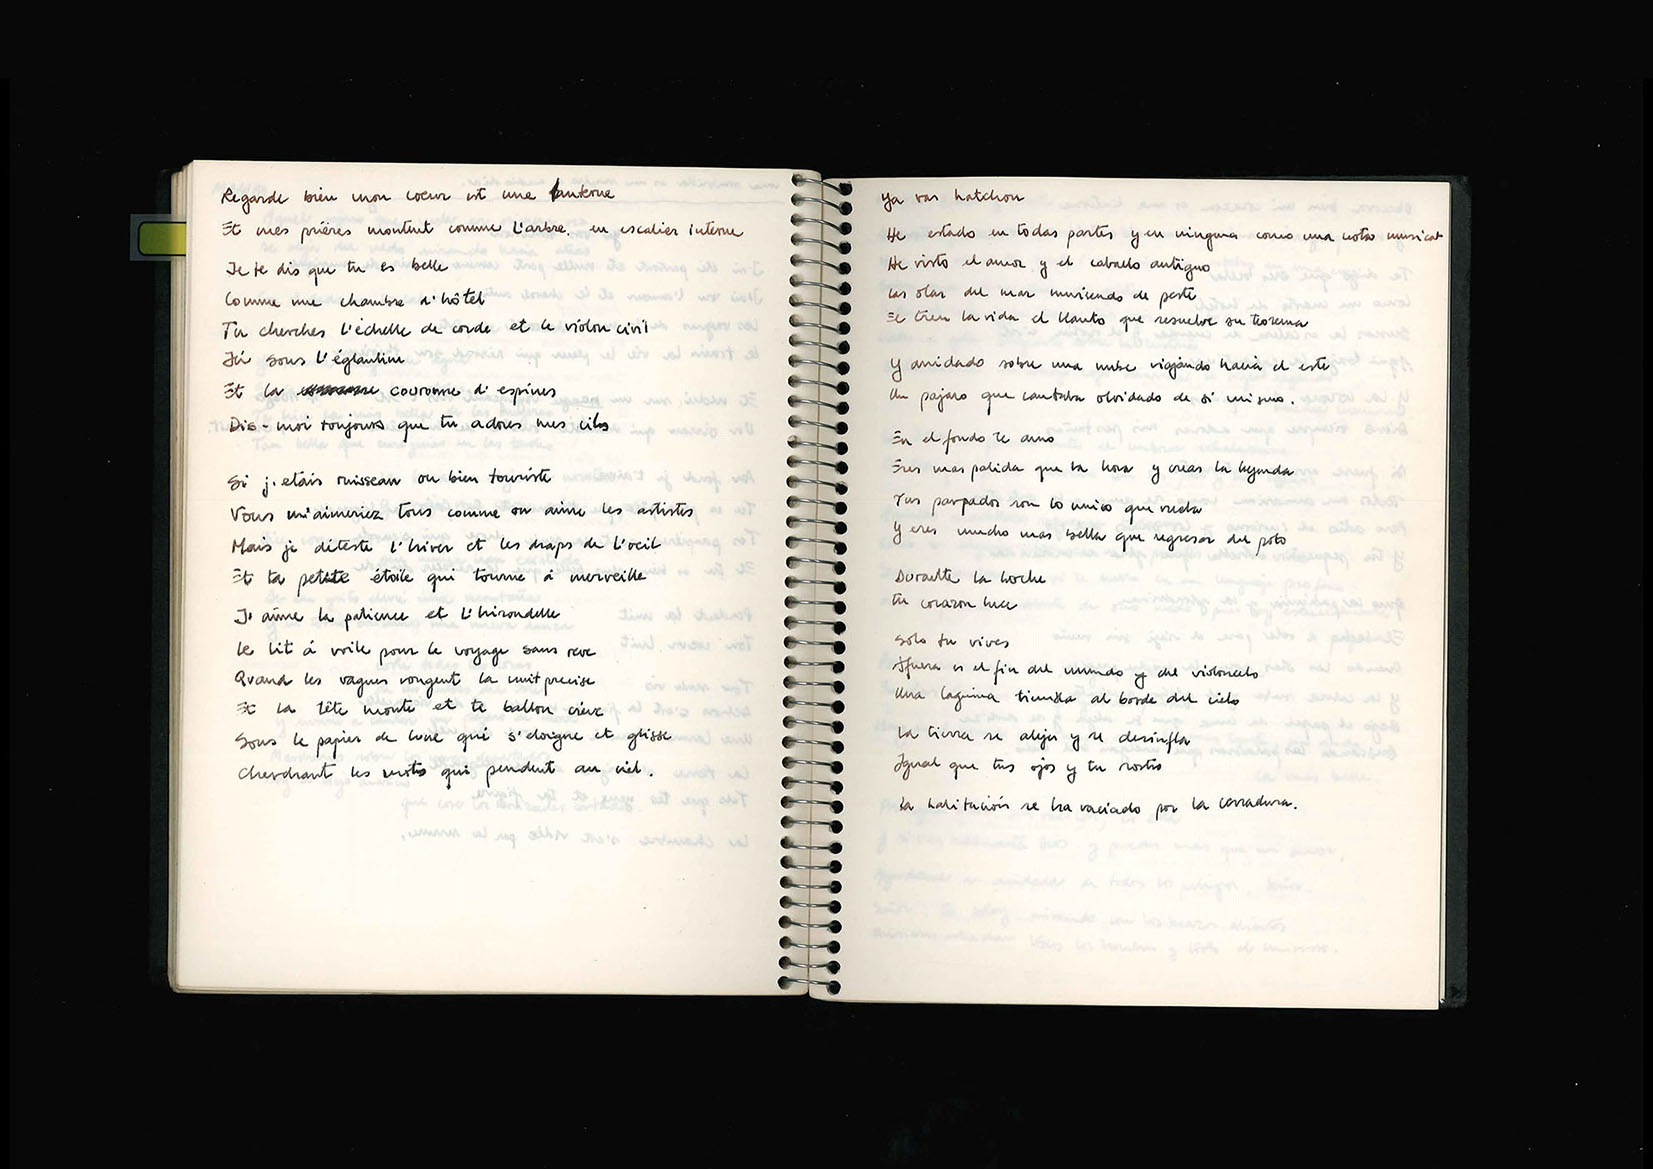 Regarde bien mon coeur est une lanterne
Et mes prières montent comme l'arbre. en escalier interne
Je te dis que tu es belle
Comme une chambre d'hôtel
Tu cherches l'échelle de corde et le violon civil
Ici sous l'églantine
Et la couronne d'espines
Dis-moi toujours que tu adores mes cils
Si j'etais ruisseau ou bien touriste
Vous m'aimeriez tous comme on aime les artistes
Mais je déteste l'hiver et les draps de l'oeil
Et ta petite étoile qui tourne á merveille
J'aime la patience et l'hirondelle
Le lit á voile pour le voyage sans reve
Quand les vagues rongent la nuit precise
Et la tête monte et te ballon crève
Sous le papier de lune qui s'eloigne et glisse
Cherchant les mots qui pendent au ciel.
Ya vas hatchou
He estado en todas partes y en ninguna como una nota musical
He visto el amor y el caballo antiguo
Las olas del mar muriendo de peste
El tren la vida el llanto que resuelve su teorema
Y anidado sobre una nube viajando hacia el este
Un pajaro que cantaba olvidado de si mismo.
En el fondo te amo
Eres mas palida que la hora y creas la leyenda
Tus parpados son lo unico que vuela
Y eres mucho mas bella que regresar del polo
Durante la noche
tu corazon luce
Solo tu vives
Afuera es el fin del mundo y del violoncelo
Una laguna tiembla al borde del cielo
La tierra se aleja y se desinfla
Igual que tus ojos y tu rostro
La habitación se ha vaciado por la cerradura.